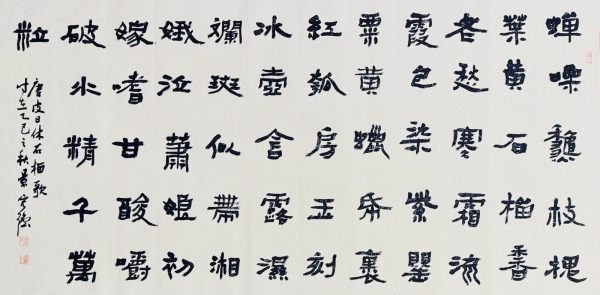 蟬噪龝枝槐
葉黄石榴香
老愁寒霜流
霞包染紫罌
粟黄蠟帋裹
紅瓠房玉刻
冰壺含露濕
斕斑似帶湘
娥泣蕭娘初
嫁嗜甘酸嚼
破水精千萬
粒
唐皮日休石榴歌
时在乙巳之秋景